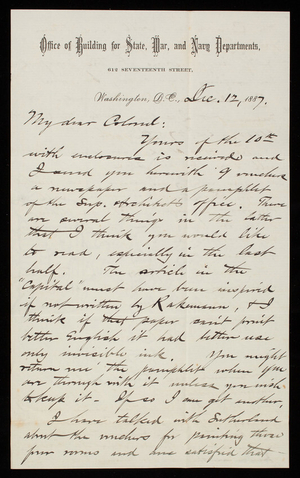 Office of Building for State, War, and Navy Departments,
612 SEVENTEENTH STREET,
Washington, D.C., Dec. 12, 1887.
My dear Colonel:
Yours of the 10th
with enclosures is received and
I send you herewith 9 vouchers
a newspaper and a pamphlet
of the Sup. Architect's office. There
are several things in the latter
that I think you would like
to read, especially in the last
half. The article in the
"Capital" must have been inspired
if not written by & I
think if that paper can't print
better English it had better use
only invisible ink. You might
return me the pamphlet when you
are through with it unless you wish
to keep it - If so I can get another.
I have talked with Sutherland
about the vouchers for painting those
four rooms and am satisfied that